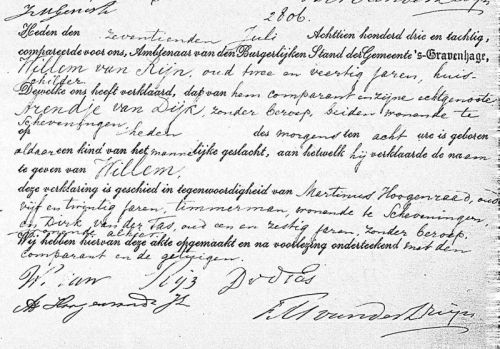 2806.
Heden den zeventienden Juli Achttien honderd drie en tachtig,
compareerde voor ons, Ambtenaar van den Burgerlijken Stand der Gemeente 's-Gravenhage,
Willem van Rijn, oud twee en veertig jaren, huis-
schilder
Dewelke ons heeft verklaard, dat van hem comparant en zijne echtgenoote
Arendje van Dijk, zonder beroep, beiden wonende te
Scheveningen,
op heden des morgens ten acht ure is geboren
aldaar een kind van het mannelijke geslacht, aan hetwelk hij verklaarde de naam
te geven van Willem,
deze verklaring is geschied in tegenwoordigheid van Martinus Hoogenraad, oud
vijf en twintig jaren, timmerman, wonende te Scheveningen
en Dirk van der Tas, oud een en zestig jaren, zonder beroep,
wonende alhier.
Wij hebben hiervan deze akte opgemaakt en na voorlezing onderteekend met den
comparant en de getuigen.
W. van Rijn